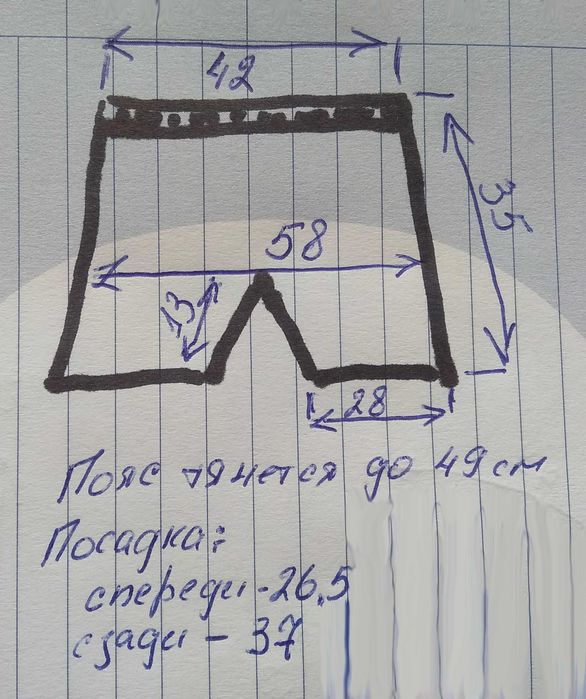 42
35
58
13
28
Пояс тянется до 49см
Посадка:
спереди - 26,5
сзади - 37